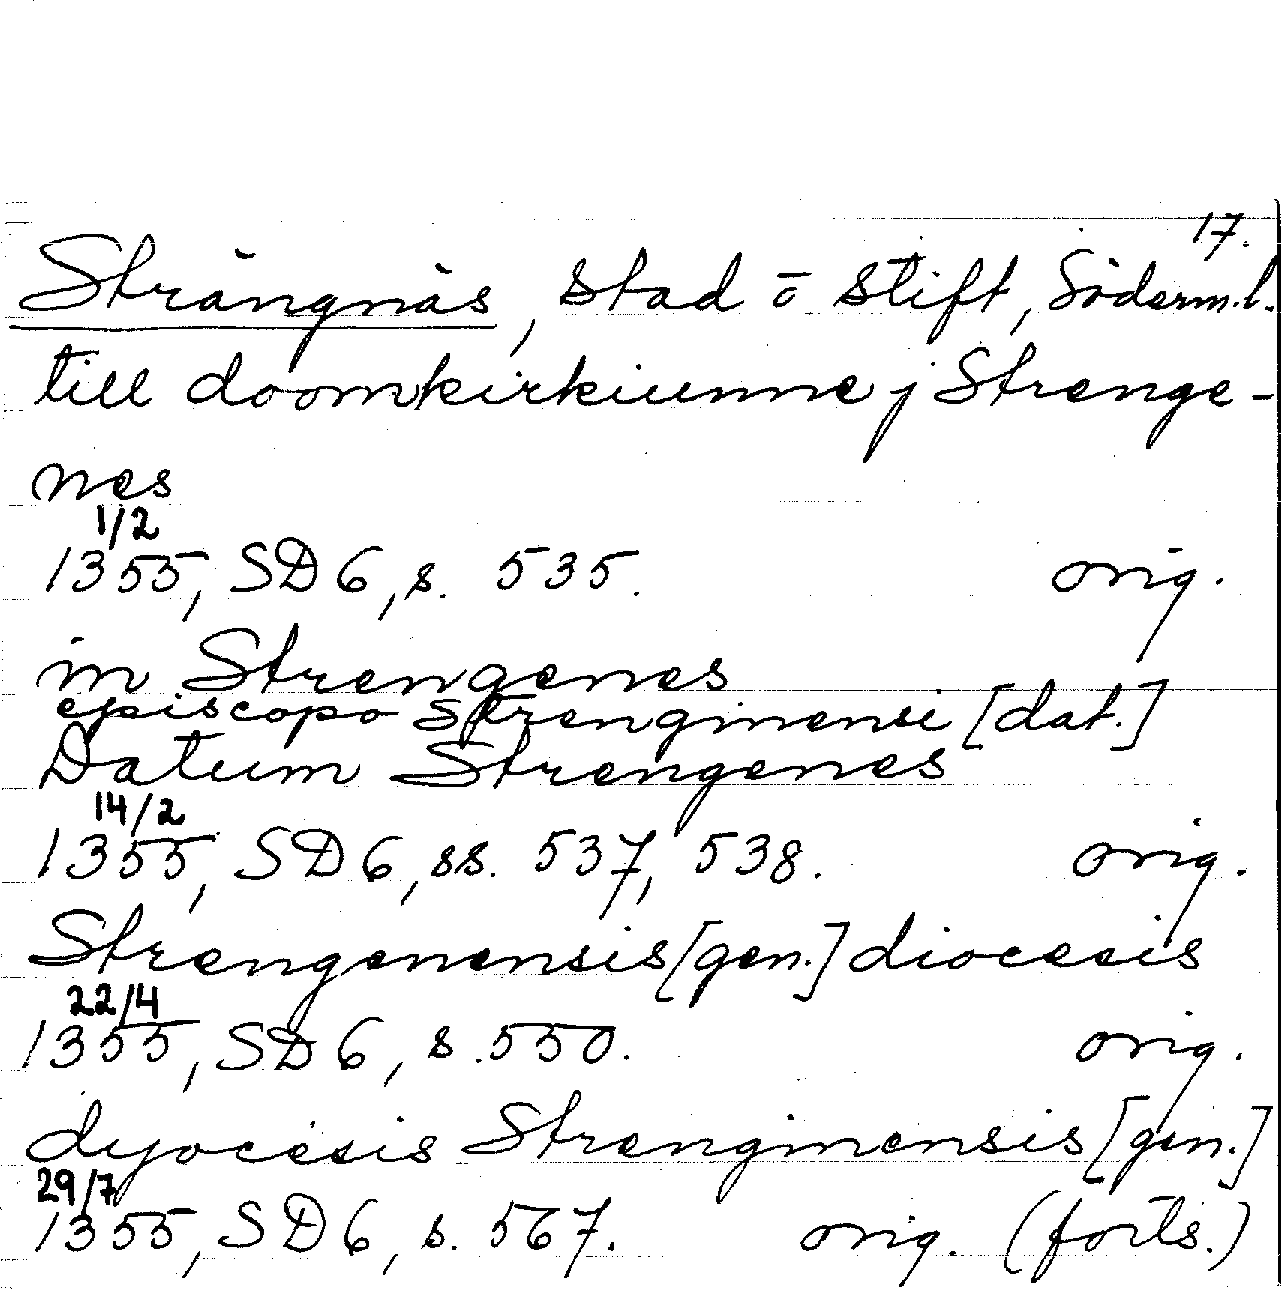 17.
Strängnäs, stad o stift, Söderm.l.
till doomkirkiunne j Strenge-
nes
1/2
1355, SD 6, s. 535. orig.
in Strengenes
episcopo Strenginensi [dat.]
Datum Strengenes
14/2
1355, SD 6, ss. 537, 538. orig.
Strengenensis [gen.] diocesis
22/4
1355, SD 6, s. 550. orig.
dyocesis Strenginensis [gen.]
29/7
1355, SD 6, s. 567. orig. (forts.)